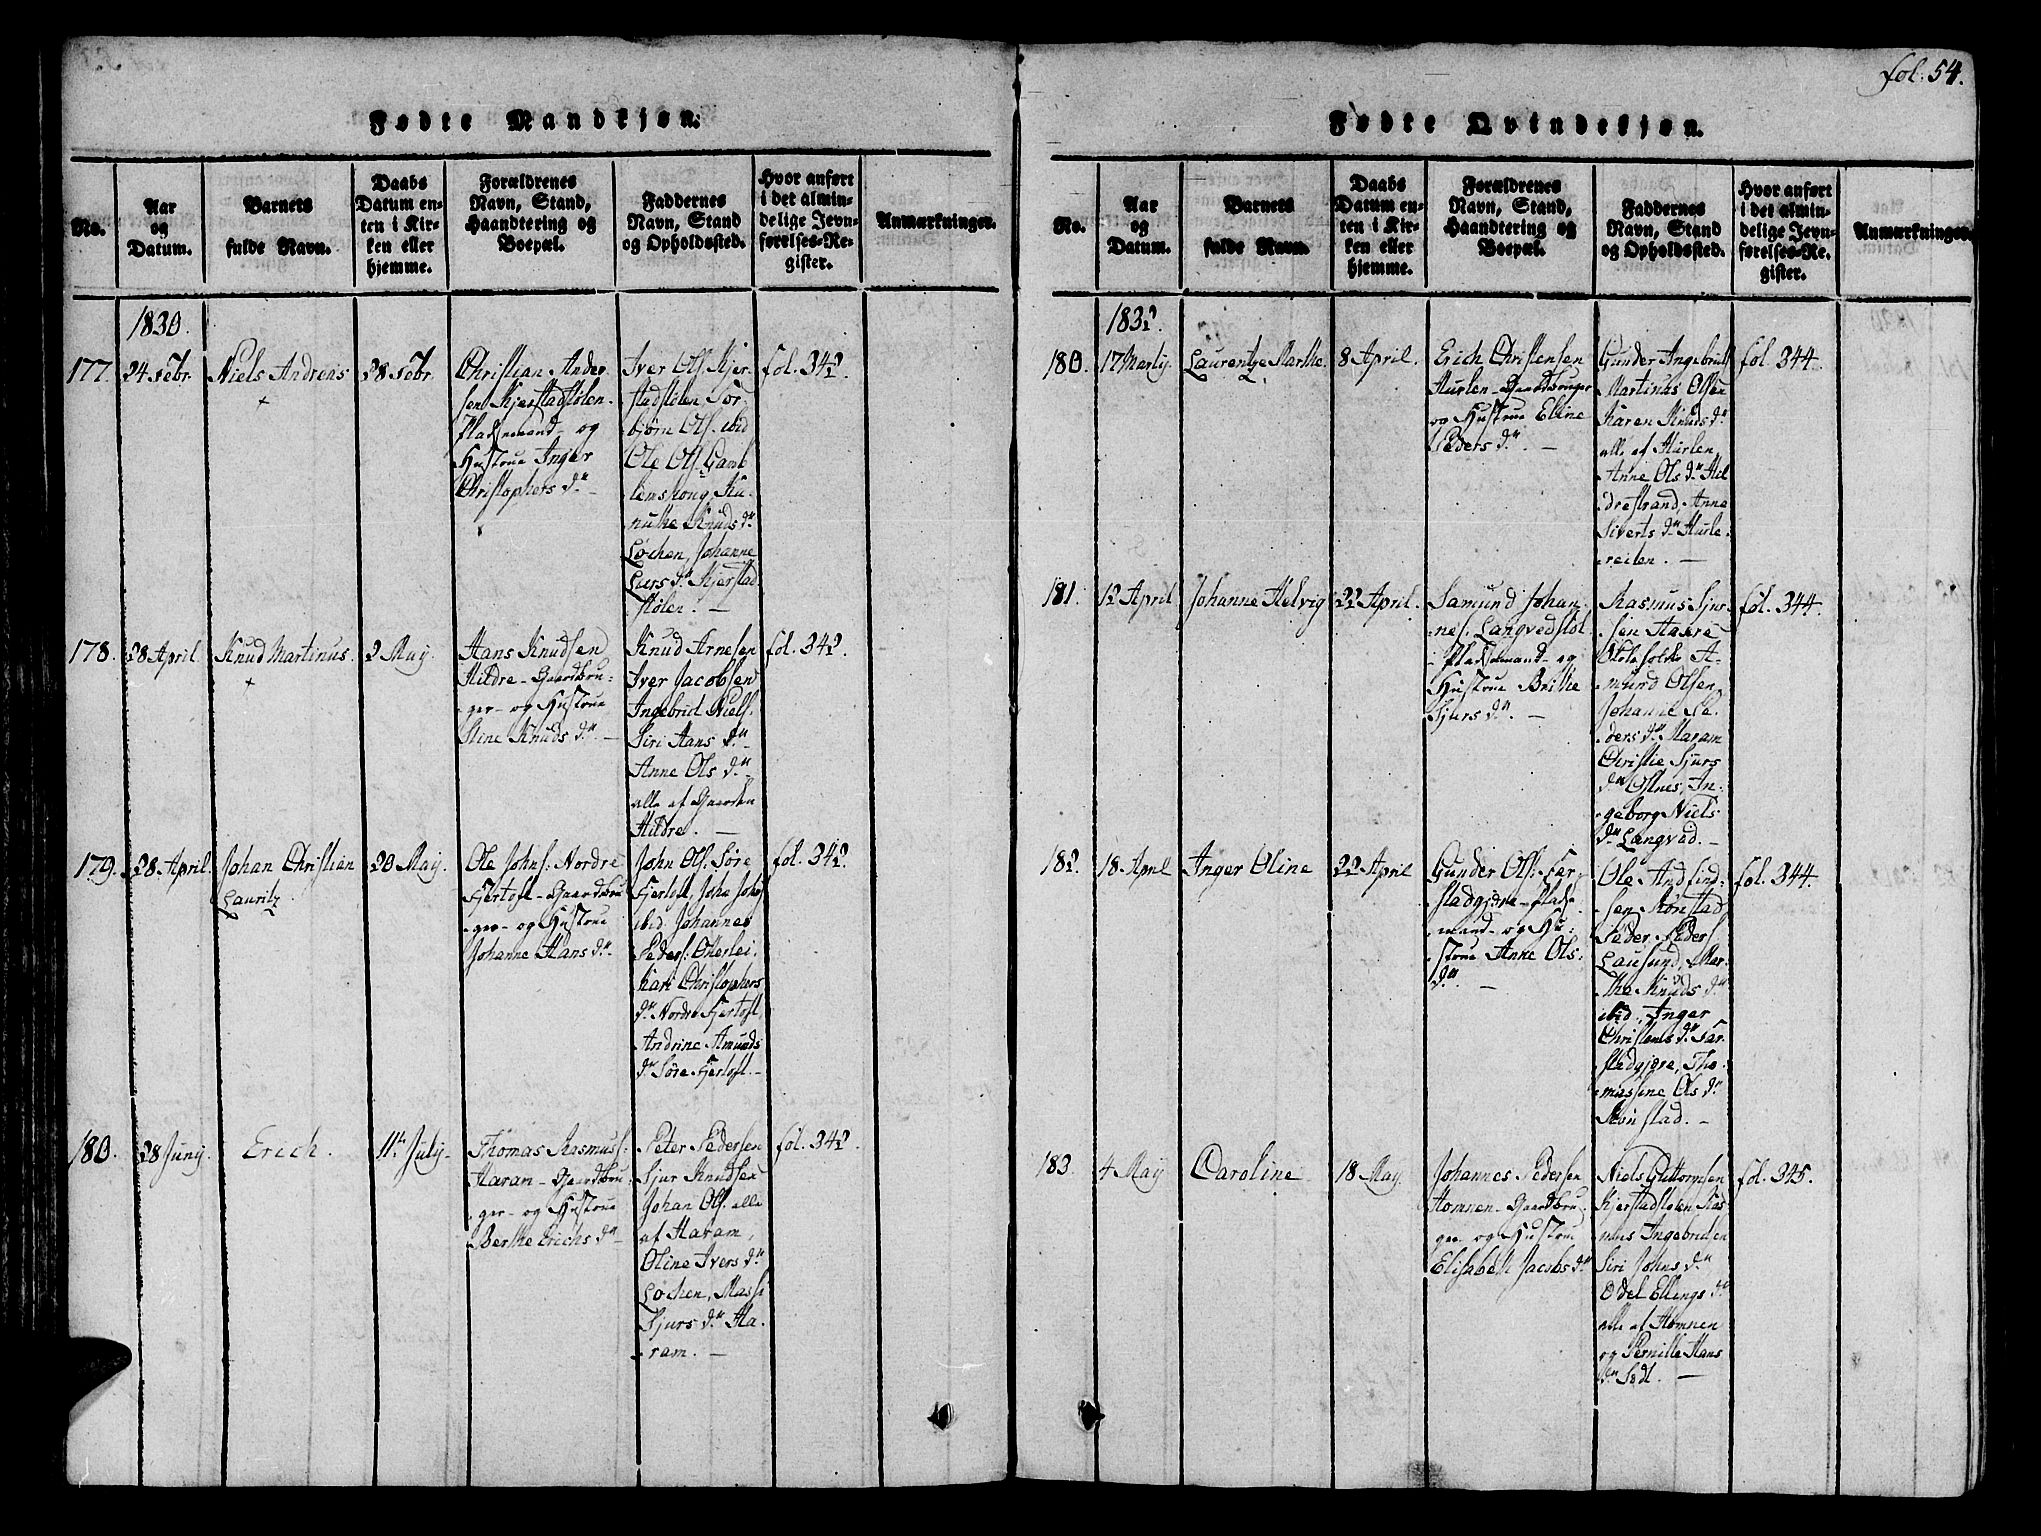 fol: 54.
Fødte Mandkjøn.
No.
Aar
og
Datum.
Barnets
fulde Navn.
Daabs
Datum en-
ten i Kir-
ken eller
hjemme.
Forældrenes
Navn, Stand,
Haandtering og
Boepæl.
Faddernes
Navn, Stand
og Opholdssted.
Hvor anført
i det almin-
delige Jevn-
førelses-Re-
gister.
Anmærkninger.
1830.
177.
24 Febr.
Niels Andreas
+
28 Febr.
Christian Ander
sen Kjerstadstølen.
Pladsmand - og
Hustrue Inger
Christophers dr.
Iver Ols. Kjer-
stadstølen Tor-
bjørn Ols. ibid
Ole Ols. Gam
lemshong,
Knuds dr.
Løchen, Johanne
Lars dr. Kjerstad
stølen. —
fol. 342.
178.
28 April.
Knud Martinus.
+
2 May.
Hans Knudsen
Hildre - Gaardbru-
ger - og Hustrue
Stine Knuds dr. —
Knud Arnesen
Iver Jacobsen
Ingebrid Niels.
Siri Hans dr.
Anne Ols dr.
alle af Gaarden
Hildre. —
fol. 342.
179.
28 April.
Johan Christian
Lauritz
20 May.
Ole Johns. Nordre
Fjertoft - Gaardbru
ger - og Hustrue
Johanne Hans dr.
John Ols. Søre
Fjertoft, Johs
ibid Johannes
Peders. Otterlei.
Kari Christophers
dr. Nordre Fjertoft,
Andrine Amunds
dr. Søre Fjertoft. —
fol. 342.
180.
28 Juny.
Erich.
11te July.
Thomas Rasmuss.
Haram - Gaardbru
ger - og Hustrue
Berthe Erichs dr.
Peter Pedersen
Sjur Knudsen
Johan Ols. alle
af Haram,
Oline Ivers dr.
Løchen,
Sjurs dr. Ha-
ram. —
fol. 342.
Fødte Qvindekjøn.
No.
Aar
og
Datum.
Barnets
fulde Navn.
Daabs
Datum en-
ten i Kir-
ken eller
hjemme.
Forældrenes
Navn, Stand,
Haandtering og
Boepæl.
Faddernes
Navn, Stand
og Opholdssted.
Hvor anført
i det almin-
delige Jevn-
førelses-Re-
gister.
Anmærkninger.
1832.
180.
17 Marty.
Laurentze Marthe.
8 April.
Erich Christensen
Hurlen - Gaardbruger
og Hustrue Eline
Peders dr. —
Gunder Ingebrits
Martinus Olsen
Karen Knuds dr.
alle af Hurlen,
Anne Ols dr. Hil
drestrand, Anne
Siverts dr. Hurle-
reiten. —
fol. 344.
181.
12 April
Johanne Helvig
22 April.
Samund Johan-
nes. Langvedstøl
Pladsmand - og
Hustrue Brithe
Sjurs dr. —
Rasmus Sjur-
sen
A-
mund Olsen
Johanne Pe-
ders dr. Haram
Christie Sjurs
dr. Ostnes, In-
geborg Niels
dr. Langvad. —
fol. 344.
182.
18 April
Inger Oline
22 April
Gunder Ols. Far-
stadgjære - Plads-
mand - og Hu-
strue Anne Ols.
dr. —
Ole Andfind-
sen Rønstad
Peder Peders.
Lausund, Mar-
the Knuds dr.
ibid., Inger
Christens dr. Far-
stadgjære, Tho-
massine Ols dr.
Rønstad. —
fol. 344.
183.
4 May
Caroline
18 May.
Johannes Pedersen
Homnen - Gaardbru-
ger og Hustrue
Elisabeth Jacobs dr.
Niels Guttormsen
Kjerstadstølen Ras
mus Ingebridsen
Siri Johns dr.
Odel Ellings dr.
alle af Homnen
og Pernille Hans
dr.
fol. 345.